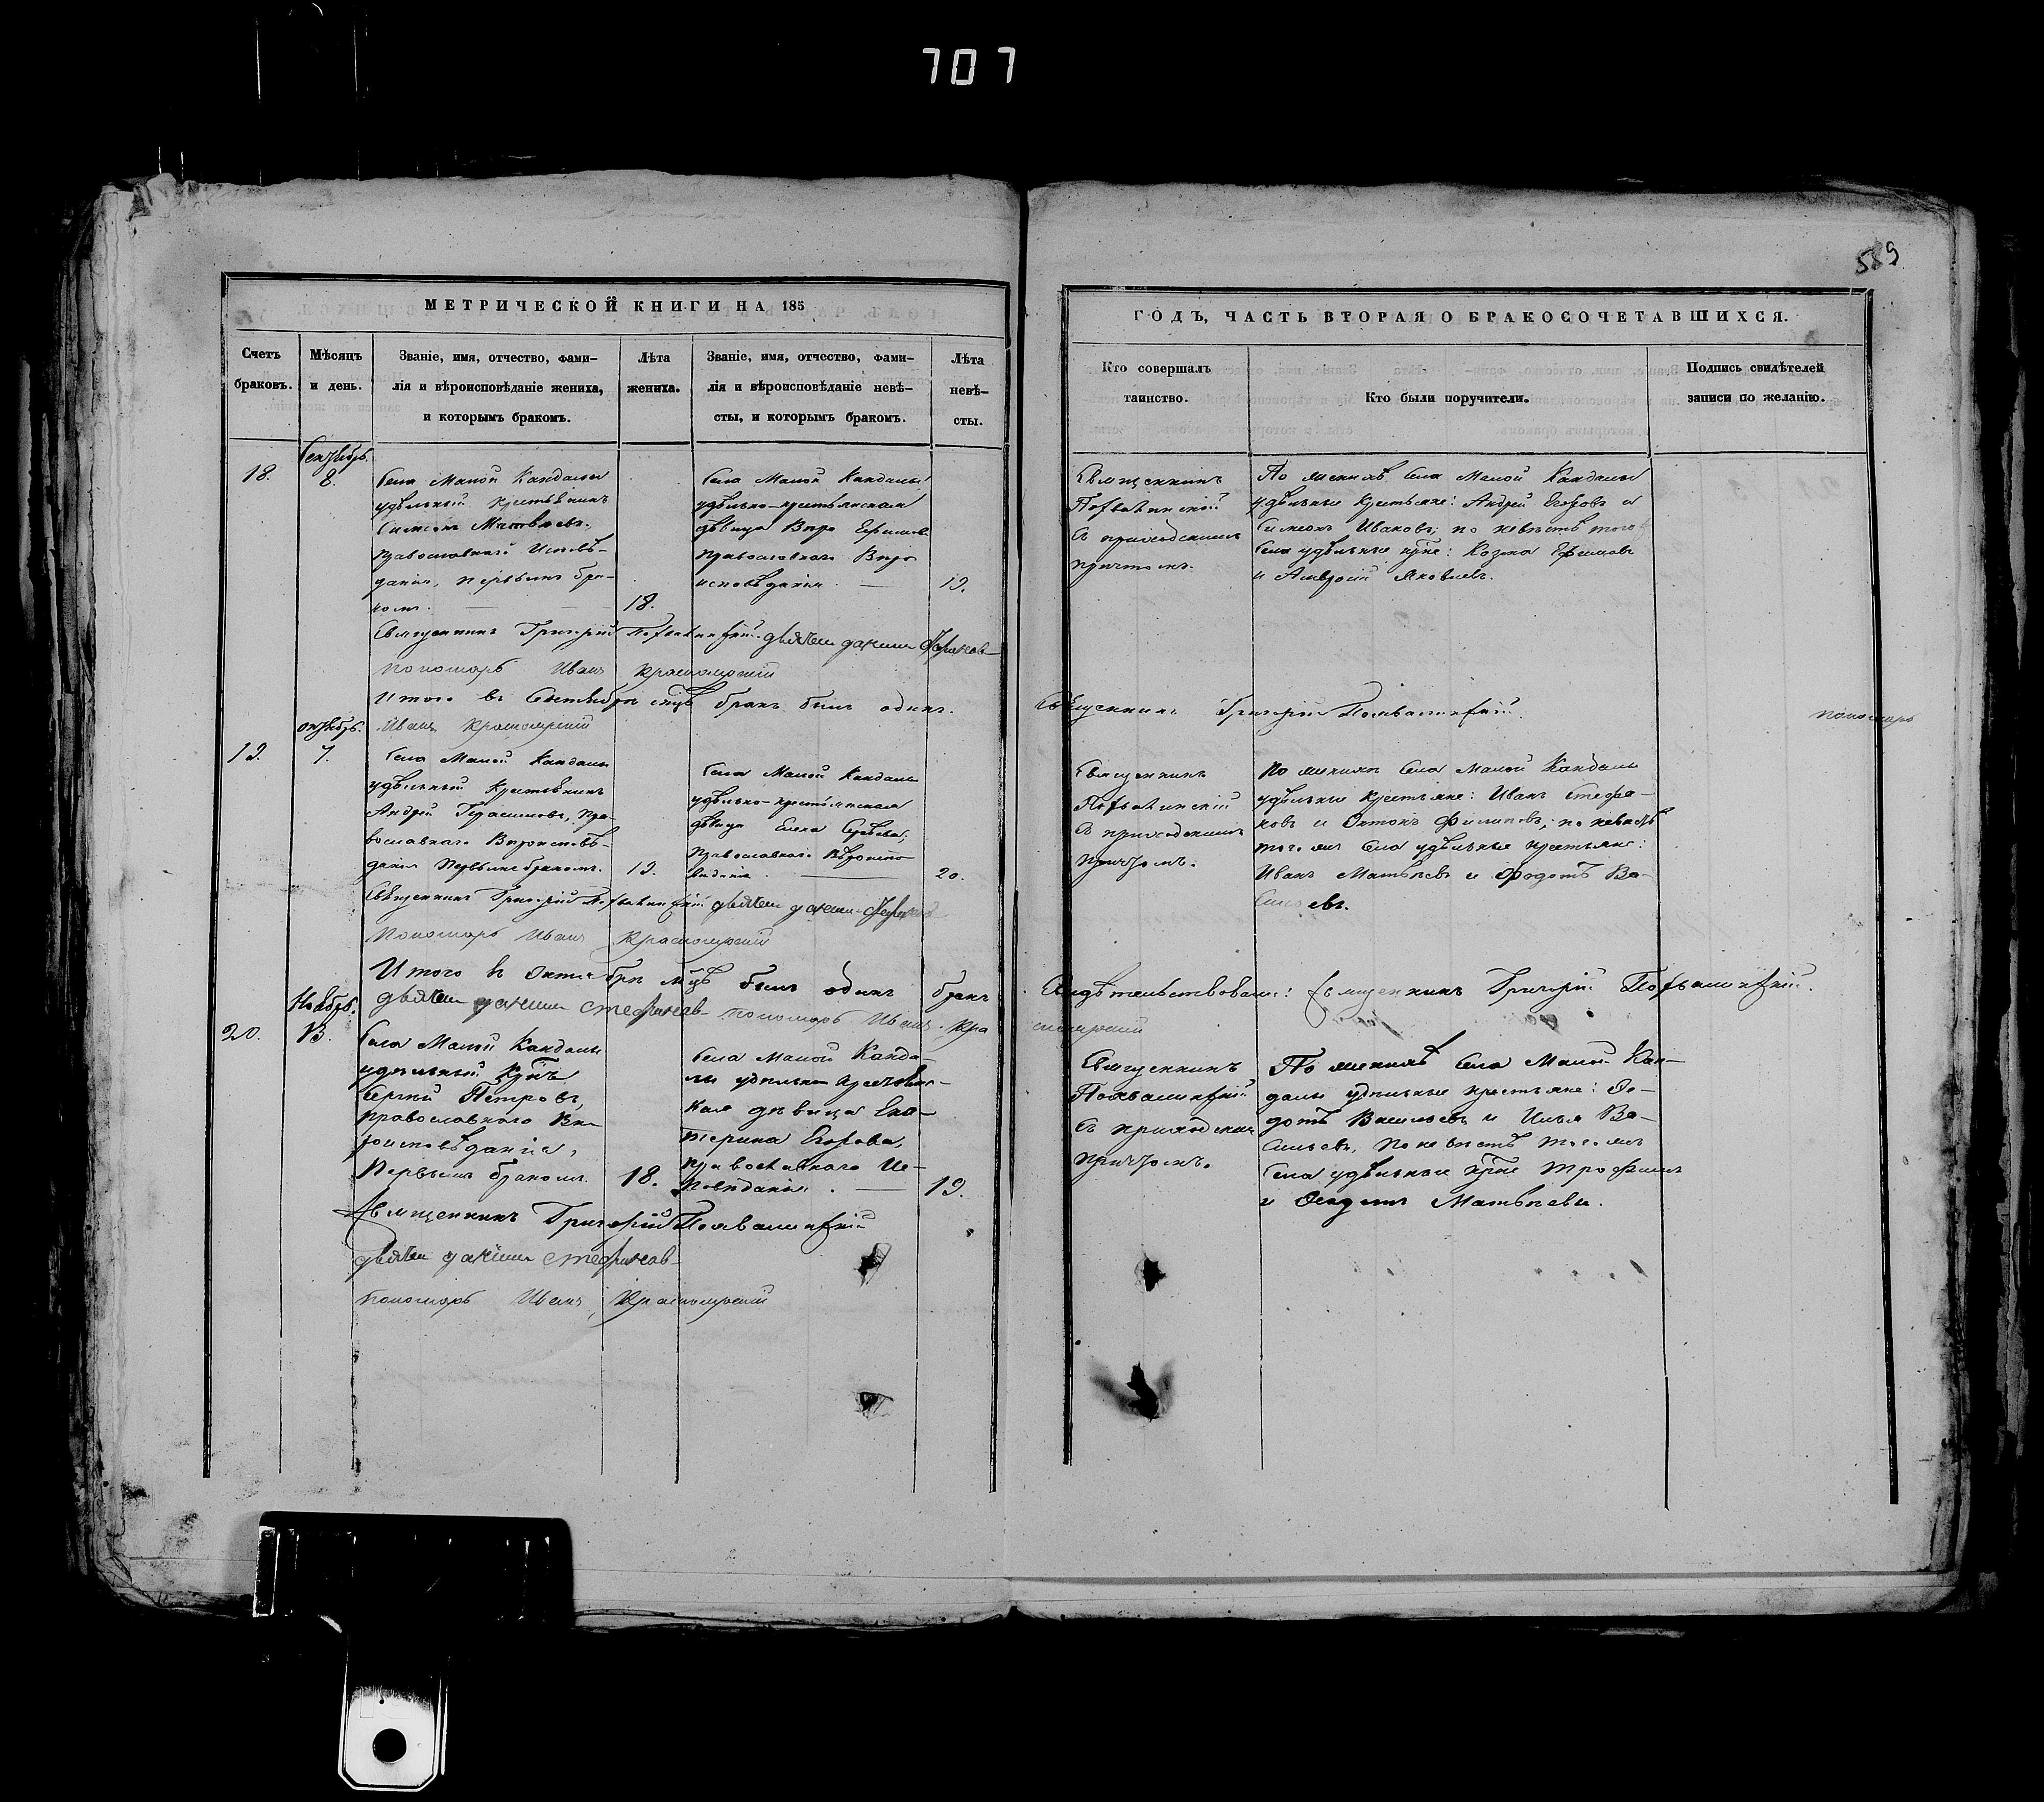 707
589
МЕТРИЧЕСКОЙ КНИГИ НА 185
Счетъ браковъ.
Мѣсяцъ и день.
Званіе, имя, отчество, фами-
лія и вѣроисповѣданіе жениха,
и которымъ бракомъ.
Лѣта жениха.
Званіе, имя, отчество, фами-
лія и вѣроисповѣданіе невѣ-
сты, и которымъ бракомъ.
Лѣта
невѣ-
сты.
ГОДЪ, ЧАСТЬ ВТОРАЯ О БРАКОСОЧЕТАВШИХСЯ.
Кто совершалъ
таинство.
Кто были поручители.
Подпись свидѣтелей
записи по желанію.
Сентябрь
18.
8.
Села Малой Кандалы
удѣльный крестьянинъ
Симеонъ Матвѣевъ,
православнаго Исповѣ-
данія, первымъ бра-
комъ.
18.
Села Малой Кандалы
удѣльно-крестьянская
дѣвица Вѣра Ефимова
православнаго Вѣро
исповѣданія.
19.
Священникъ
Похвалинскій
съ приходскимъ
причтомъ.
По женихѣ Села Малой Кандалы
удѣльные крестьяне: Андрей Егоровъ и
Симеонъ Ивановъ; по невѣстѣ того
Села удѣльные кр҃не: Козма Ефимовъ
и Амвросій Яковлевъ.
Священникъ Григорій Похвалинскій
пономарь Иванъ Красноярскій
Итого въ Сентябрѣ м҃цѣ бракъ былъ одинъ.
Священникъ Григорій Похвалинскій.
пономарь
Иванъ Красноярскій
октябрь.
19.
7.
Села Малой Кандалы
удѣльный Крестьянинъ
Андрей Герасимовъ, пра-
вославнаго Вѣроисповѣ-
данія Первымъ бракомъ.
19.
Села Малой Кандалы
удѣльно-крестьянская
дѣвица Елена Сергѣева,
православнаго Вѣроиспо
веданія.
20.
Священникъ
Похвалинскій
съ приходскимъ
причтомъ.
по женихѣ Села Малой Кандалы
удѣльные крестьяне: Иванъ Стефа-
новъ и Антонъ Филиповъ; по невѣстѣ
того же Села удѣльные крестьяне:
Иванъ Матвѣевъ и Федотъ Ва-
сильевъ.
Священникъ Григорій Похвалинскій
Пономарь Иванъ Красноярскій
Итого въ Октябрѣ м҃цѣ былъ одинъ бракъ
Свидѣтельствовали: Священникъ Григорій Похвалинскій.
пономарь Иванъ Кра
сноярскій
Ноябрь.
20.
Села Малой Кандалы
удѣльный Кр҃нъ
Сергѣй Петровъ,
православнаго Вѣ
роисповѣданія,
Первымъ бракомъ.
18.
Села Малой Канда-
лы удѣльно крестьян-
ская дѣвица Ека-
терина Егорова,
православнаго Ис-
повѣданія.
19.
Священникъ
Похвалинскій
съ приходскимъ
причтомъ.
По женихѣ Села Малой Кан-
далы удѣльные крестьяне: Фе-
дотъ Васильевъ и Илья Ва-
сильевъ, по невѣстѣ того же
Села удѣльные кр҃не Трофимъ
и Матвѣевы.
Священникъ Григорій Похвалинскій
пономарь Иванъ Красноярскій